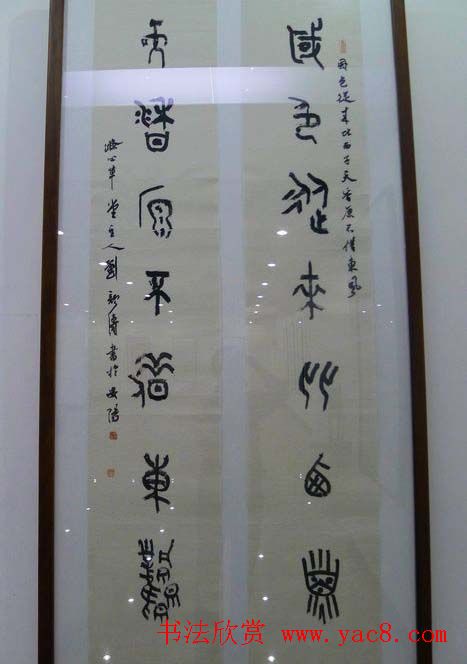 國色從來比西子
國色從來比西子天香原不借東風
天香原不借東風
心草堂主人劉顏濤書於安陽
书法欣赏 www.yac8.com